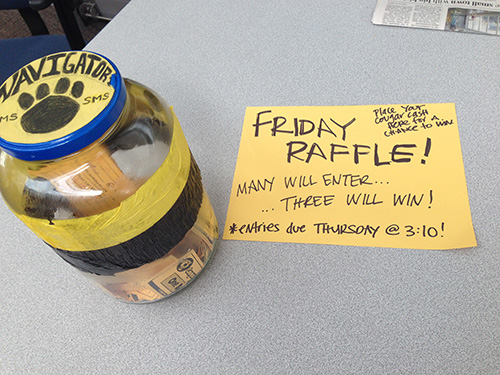 NAVIGATORS
SMS
SMS
FRIDAY
RAFFLE!
Place Your
Cougar Cash
Here for A
CHANCE TO WIN
MANY WILL ENTER...
...THREE WILL WIN!
*entries due THURSDAY @ 3:10!